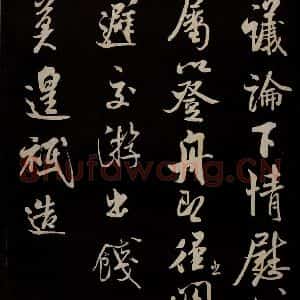 議論下情慰
屬以登舟即徑之
遲交游出餞
莫遑祗造
Shufawang.CN